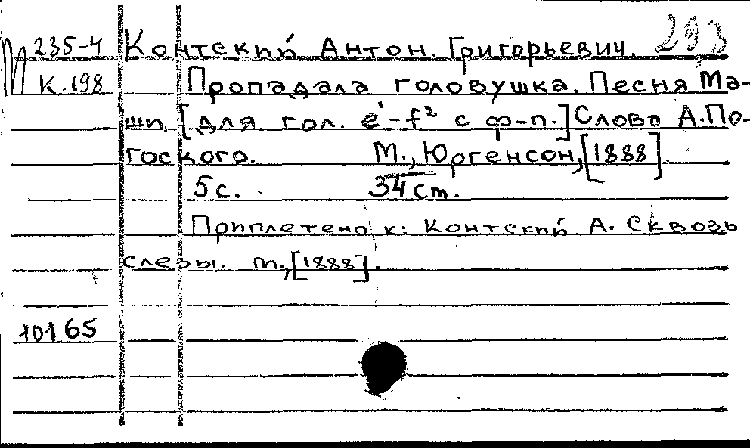 235-4 Контский Антон Григорьевич. 293
К.198 Пропадала головушка. Песня Ма-
ши [для гол. e¹-f² с ф-п.] Слова А.По-
гоского. М., Юргенсон, [1888].
5 с. 34 ст.
Приплетено к: Контский А. Сквозь
слезы. М., [1888].
10165